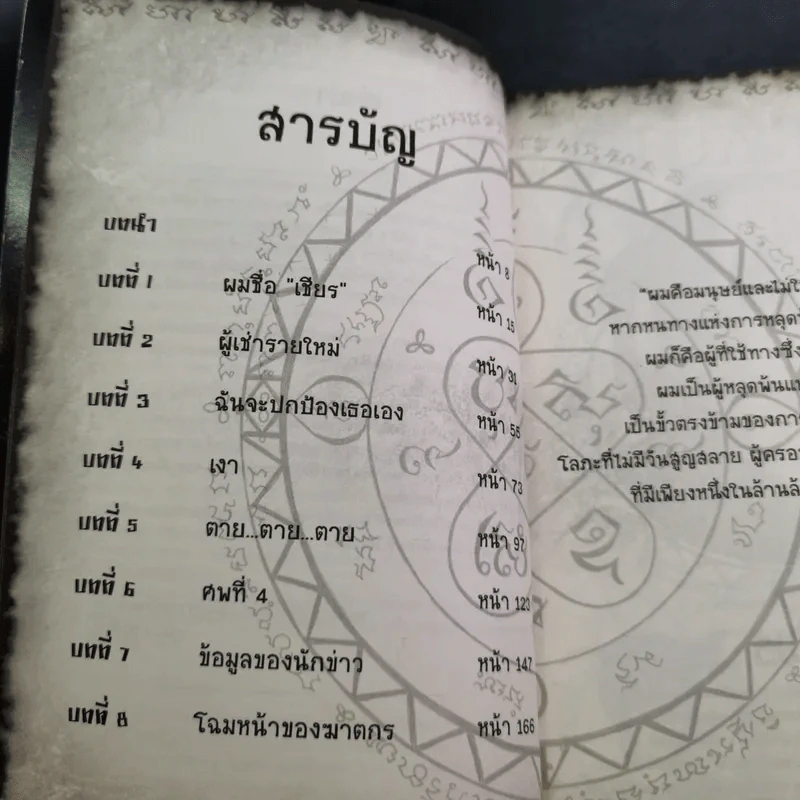 สารบัญ
บทนำ หน้า 8
บทที่ 1 ผมชื่อ "เชียร" หน้า 15
บทที่ 2 ผู้เช่ารายใหม่ หน้า 31
บทที่ 3 ฉันจะปกป้องเธอเอง หน้า 55
บทที่ 4 เงา หน้า 73
บทที่ 5 ตาย...ตาย...ตาย หน้า 97
บทที่ 6 ศพที่ 4 หน้า 123
บทที่ 7 ข้อมูลของนักข่าว หน้า 147
บทที่ 8 โฉมหน้าของฆาตกร หน้า 166
"ผมคือมนุษย์และไม่ใ
หากหนทางแห่งการหลุด
ผมก็คือผู้ที่ใช้ทางซึ่ง
ผมเป็นผู้หลุดพ้นแ
เป็นขั้วตรงข้ามของกา
โลภะที่ไม่มีวันสูญสลาย ผู้ครอ
ที่มีเพียงหนึ่งในล้านล้